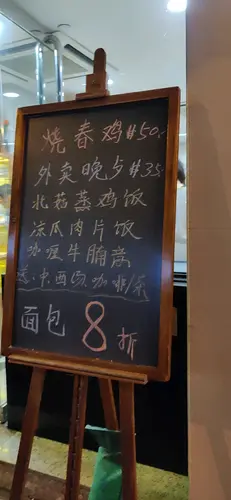 烧春鸡 $50.
外卖晚夕 $35
北菇蒸鸡饭
凉瓜肉片饭
咖喱牛腩意
送:中西汤咖啡/茶
面包8折